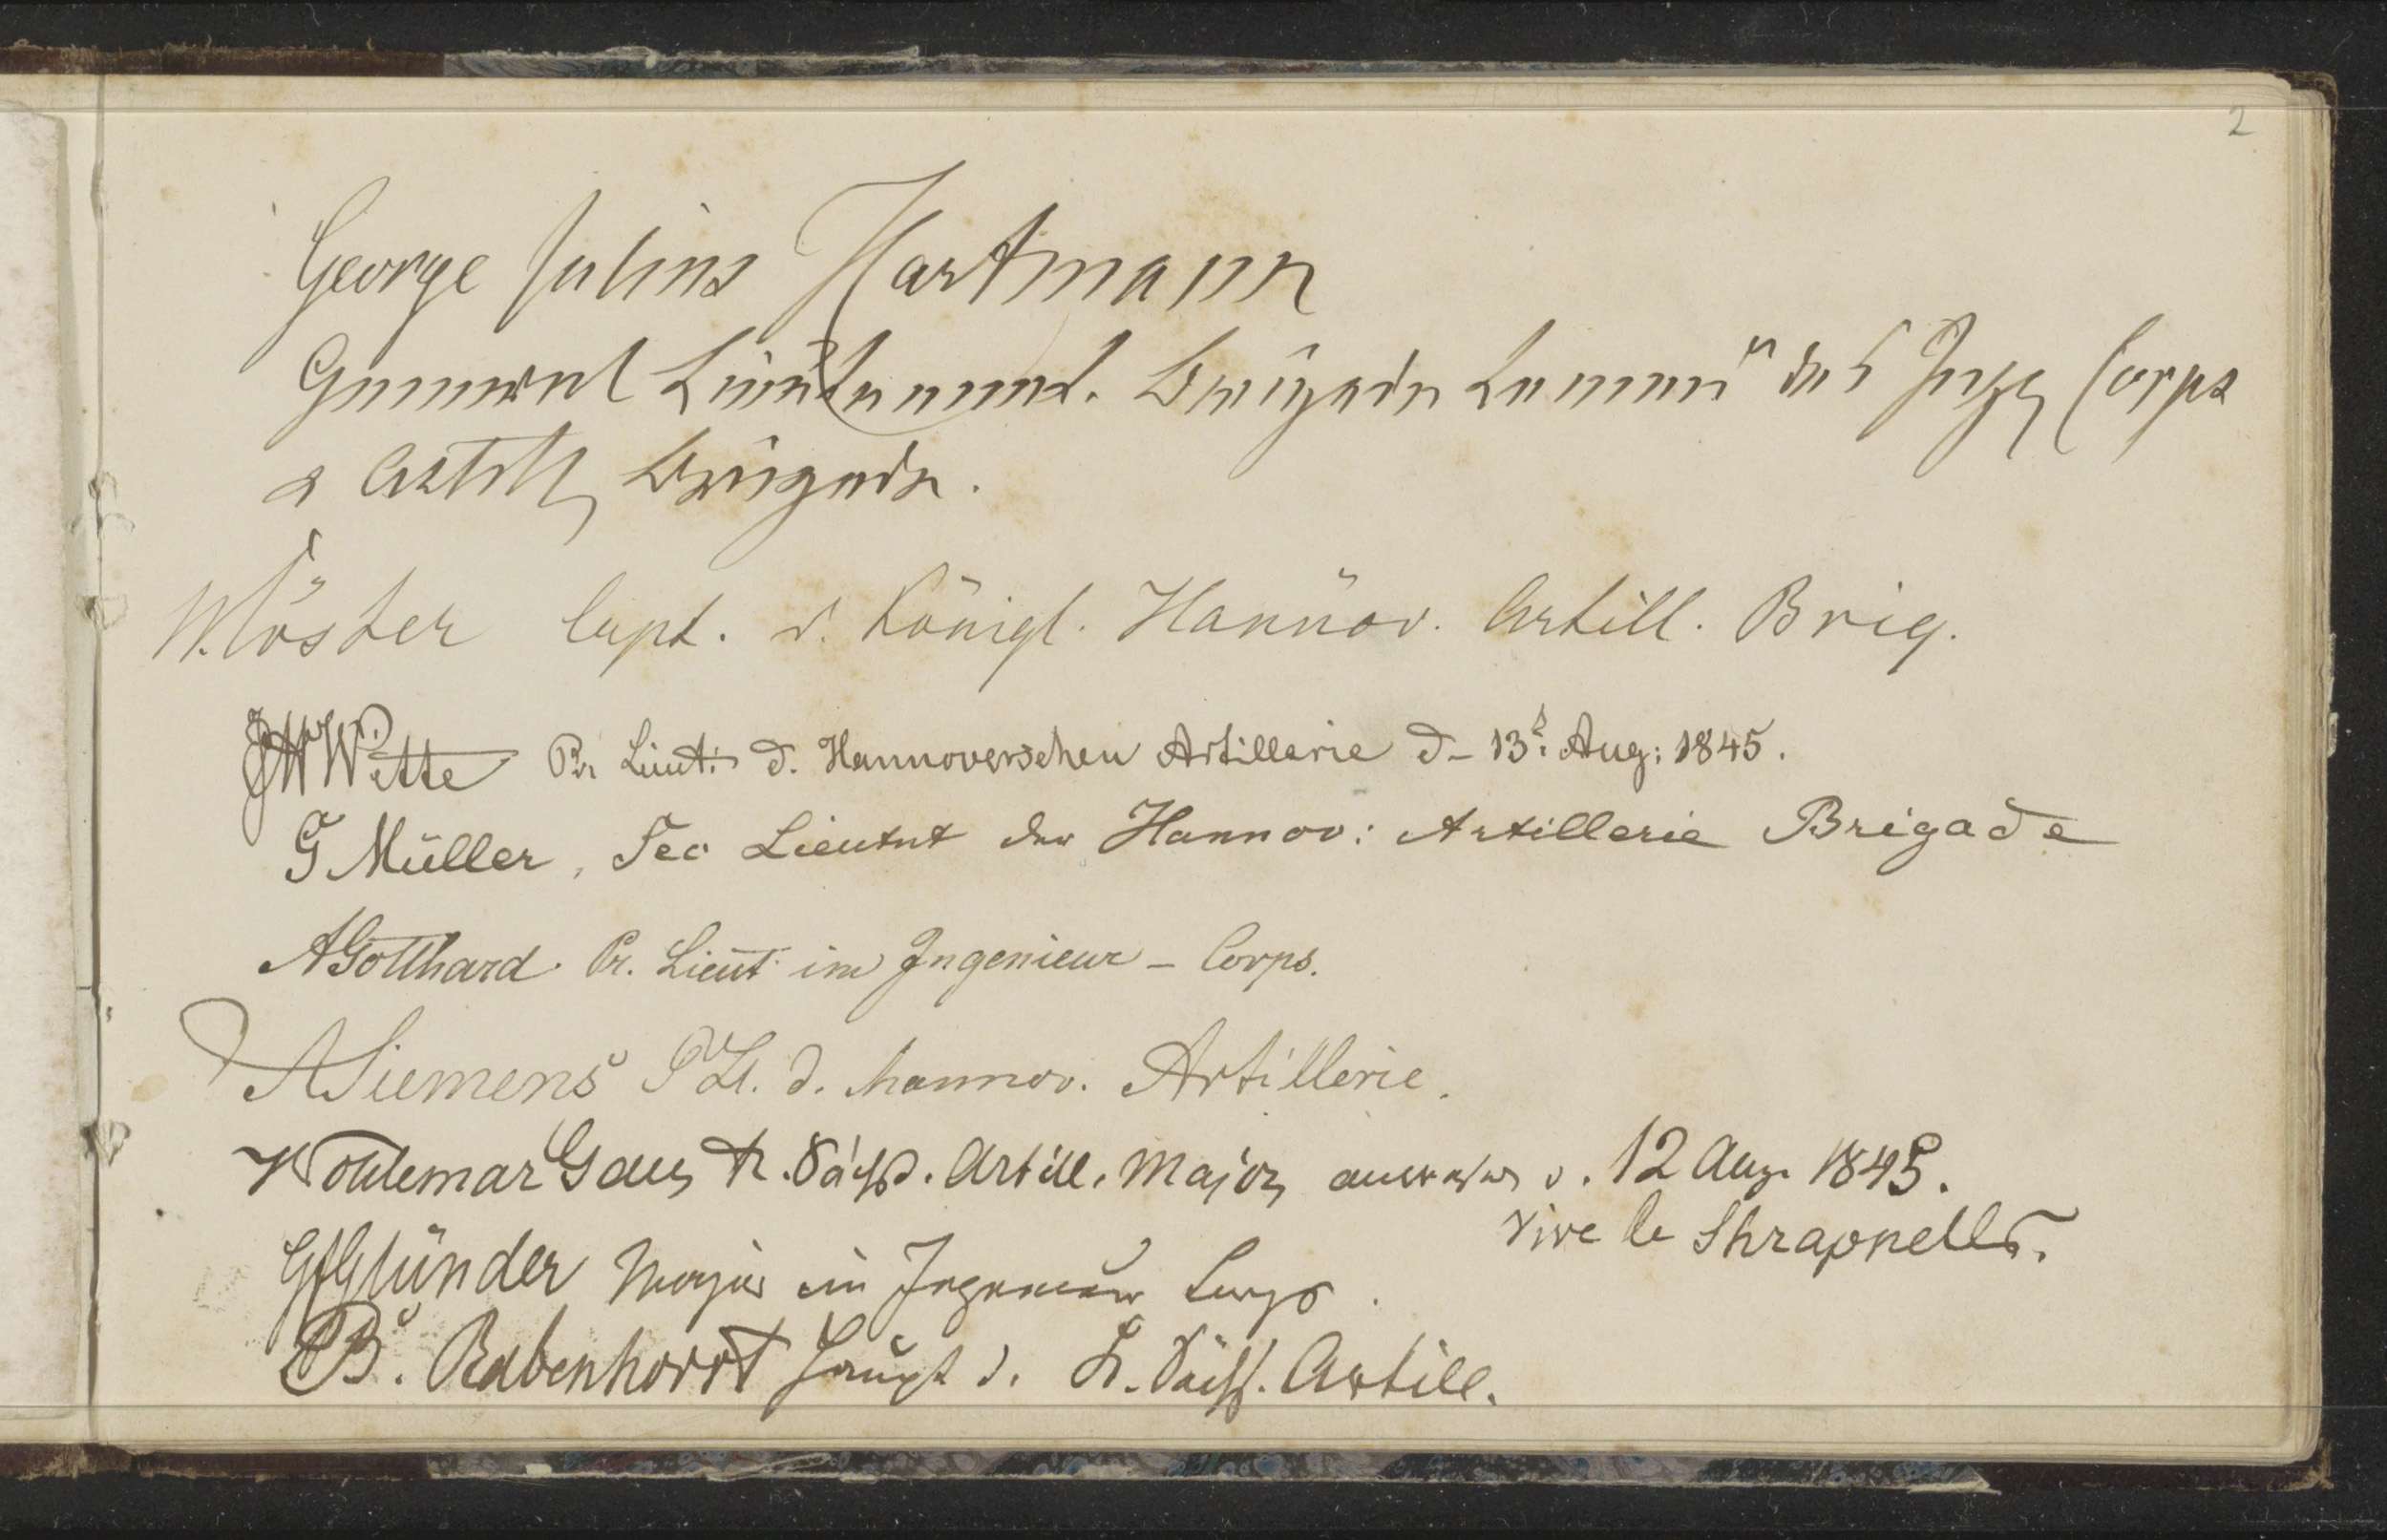 2
George Julius Hartmann
General Lieutenant. Brigade Comman des Inge Corps
& Artill Brigade.
Möster Capt. d. Königl. Hannov. Artill. Brig.
Witte Pr Lieut: d. Hannoverschen Artillerie d- 13t. Aug: 1845.
G Müller, Sec Lieutnt der Hannov: Artillerie Brigade
A Gotthard. Pr. Lieut im Ingenieur – Corps.
A Siemens P Lt. d. hannov. Artillerie.
Woldemar K. Sächs. Artill. Major 12 Aug. 1845.
vive le Shrapnells.
Glünder Major im Ingenieur Corps.
B. Rabenhorst Haupt d. K. Sächs. Artill.